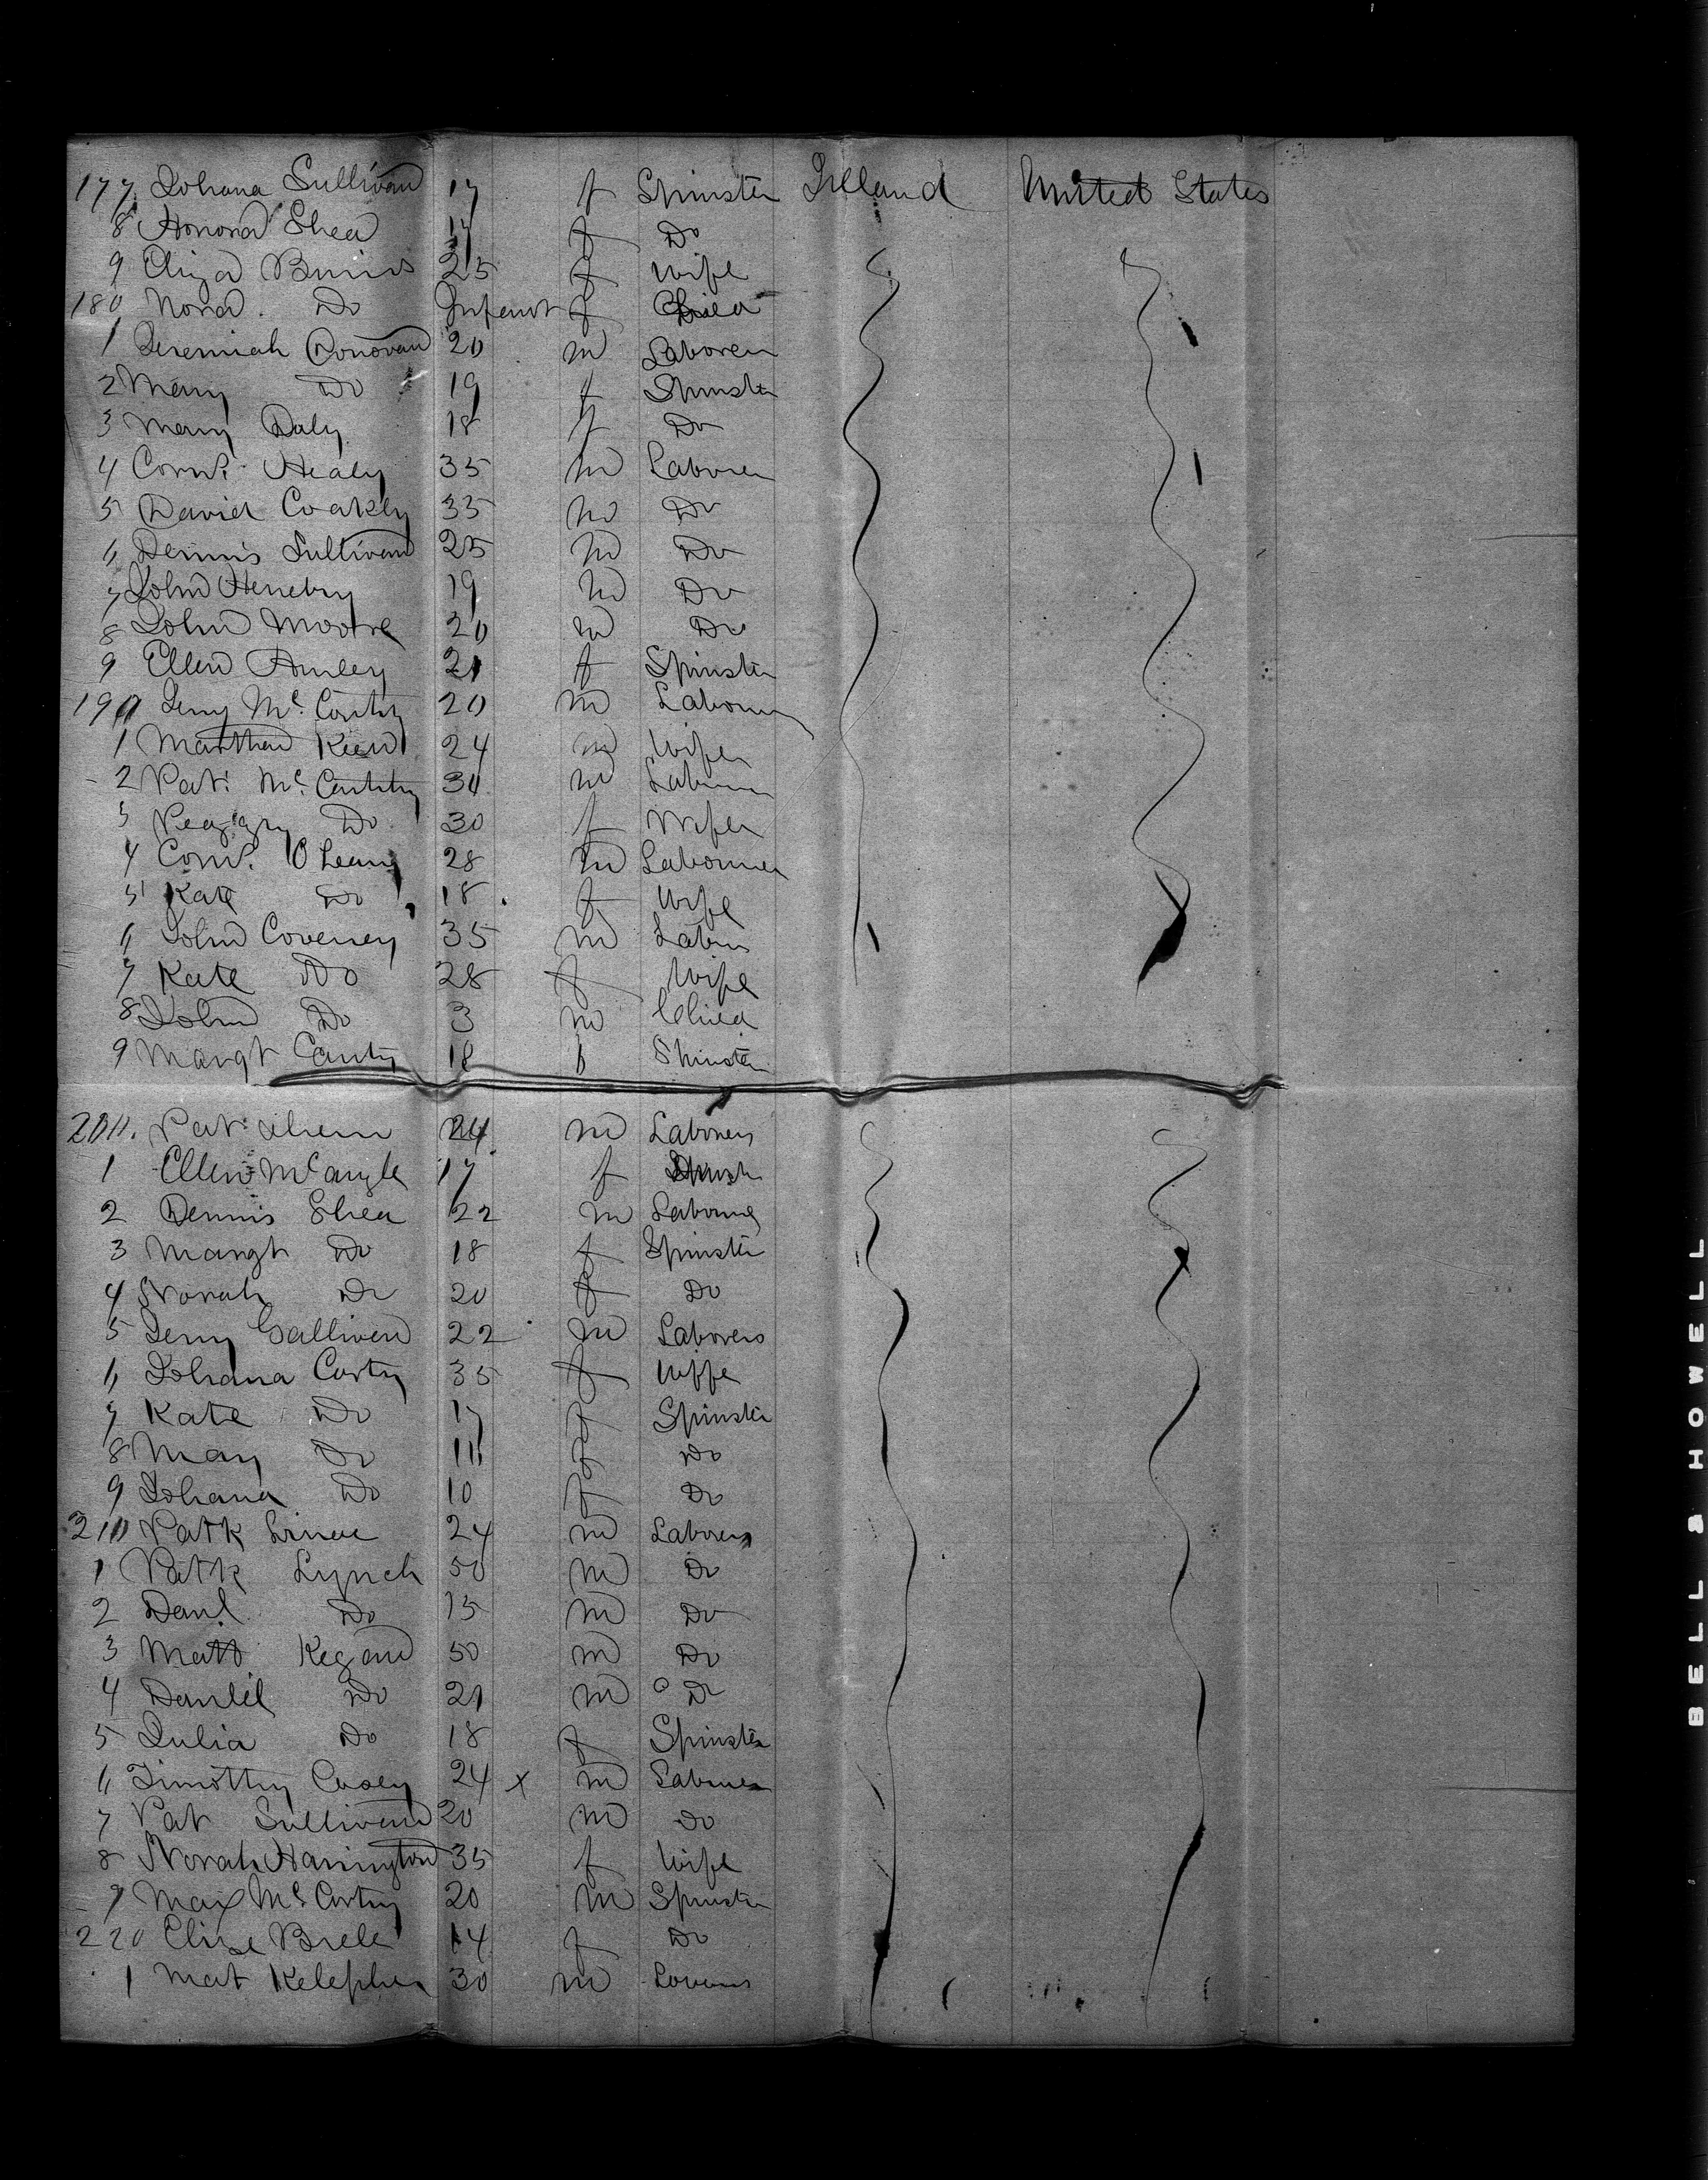 177 Johana Sullivan 17 f Spinster Irland United States
8 Honora Shea 17 f Do
9 Eliza Burns 25 f Wife
180 Nora Do Infant f Child
1 Jeremiah Donovan 20 m Laborer
2 Mary Do 19 f Spinster
3 Mary Daly 18 f Do
4 Corns. Healy 35 m Laborer
5 David Coakly 35 m Do
6 Dennis Sullivan 25 m Do
7 John Henebry 19 m Do
8 John Moore 20 m Do
9 Ellen Hurley 21 f Spinster
190 Jerry Mc. Carthy 20 m Laborer
1 Martha Keen 24 m Wife
2 Pat. Mc. Carthy 30 m Laborer
3 Peggy Do 30 f Wife
4 Corns. O Leary 28 m Laborer
5 Kate Do 18 f Wife
6 John Coveney 35 m Labor
7 Kate Do 28 f Wife
8 John Do 3 m Child
9 Margt Canty 18 f Spinster
200. Pat Ahern 24 m Laborer
1 Ellen Mc 17 f Spinster
2 Dennis Shea 22 m Laborer
3 Margt Do 18 f Spinster
4 Norah Do 20 f Do
5 Jerry Sullivan 22 m Laborer
6 Johana Carty 35 f Wife
7 Kate Do 17 f Spinster
8 Mary Do 16 f Do
9 Johana Do 10 f Do
210 Patk 24 m Laborer
1 Patk Lynch 50 m Do
2 Danl. Do 15 m Do
3 Matt Kegan 50 m Do
4 Daniel Do 21 m Do
5 Julia Do 18 f Spinster
6 Timothy Casey 24 x m Laborer
7 Pat Sullivan 20 m Do
8 Norah Harrington 35 f Wife
9 Mc. Carthy 20 m Spinster
220 Elise 14 f Do
1 Mat 30 m
BELL & HOWELL